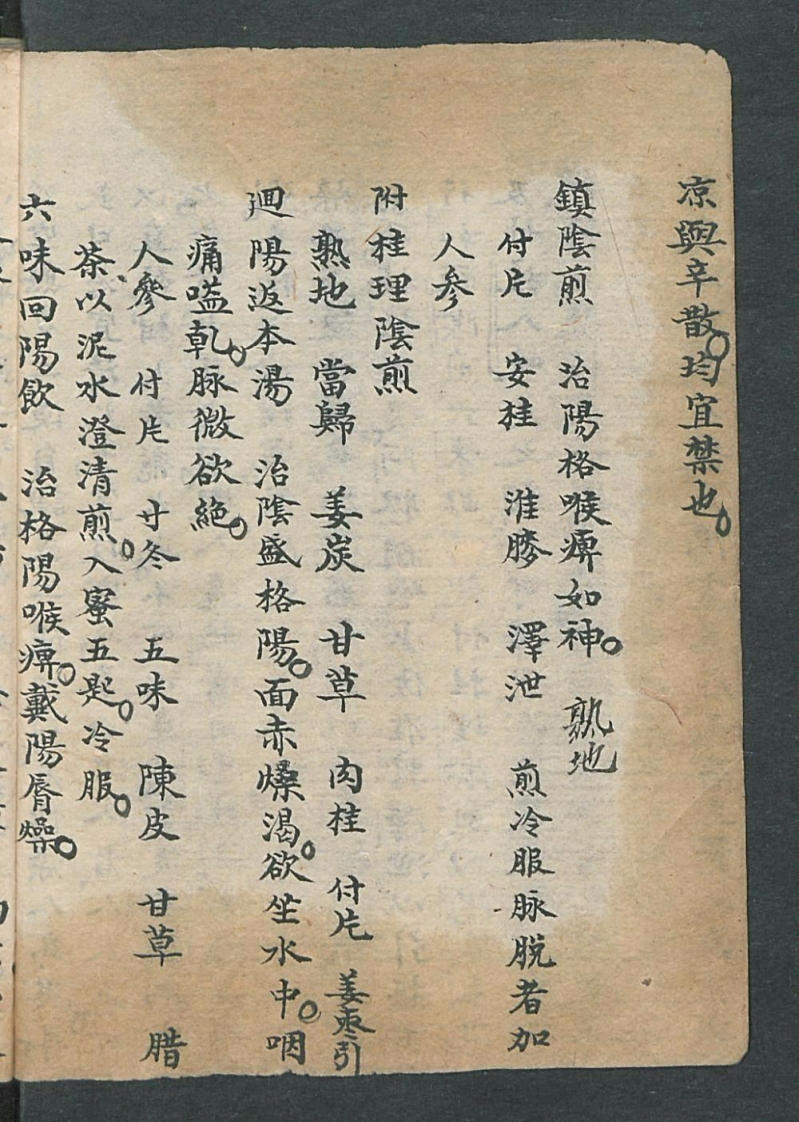 凉與辛散。均宜禁也。
鎮陰煎 治陽格喉痺如神。 熟地
付片 安桂 淮膝 澤泄 煎冷服脉脱者加
人參
附桂理陰煎
熟地 當歸 姜炭 甘草 肉桂 付片 姜枣引
迴陽返本湯 治陰盛格陽。面赤燥渴。欲坐水中。咽
痛嗌乾。脉微欲絶。
人參 付片 寸冬 五味 陳皮 甘草 腊
茶以泥水澄清煎。入蜜五匙。冷服。
六味回陽飲 治格陽喉痺。戴陽唇燥。